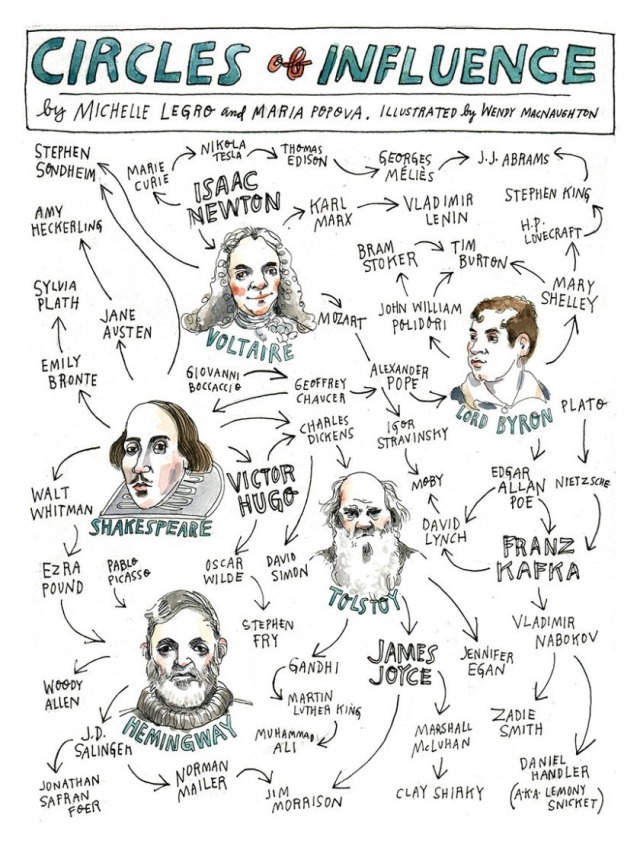 CIRCLES of INFLUENCE
by MICHELLE LEGRO and MARIA POPOVA. ILLUSTRATED by WENDY MACNAUGHTON
STEPHEN
SONDHEIM
MARIE
CURIE
NIKOLA
TESLA
THOMAS
EDISON
GEORGES
MÉLIÈS
J.J. ABRAMS
ISAAC
NEWTON
KARL
MARX
VLADIMIR
LENIN
STEPHEN KING
H.P.
LOVECRAFT
AMY
HECKERLING
BRAM
STOKER
TIM
BURTON
MARY
SHELLEY
SYLVIA
PLATH
JANE
AUSTEN
MOZART
JOHN WILLIAM
POLIDORI
VOLTAIRE
EMILY
BRONTE
GIOVANNI
BOCCACCIO
GEOFFREY
CHAUCER
ALEXANDER
POPE
LORD BYRON
PLATO
CHARLES
DICKENS
IGOR
STRAVINSKY
WALT
WHITMAN
SHAKESPEARE
VICTOR
HUGO
MOBY
EDGAR
ALLAN
POE
NIETZSCHE
DAVID
LYNCH
FRANZ
KAFKA
EZRA
POUND
PABLO
PICASSO
OSCAR
WILDE
DAVID
SIMON
TOLSTOY
STEPHEN
FRY
VLADIMIR
NABOKOV
GANDHI
JAMES
JOYCE
JENNIFER
EGAN
WOODY
ALLEN
MARTIN
LUTHER KING
HEMINGWAY
MUHAMMAD
ALI
MARSHALL
McLUHAN
ZADIE
SMITH
J.D.
SALINGER
JONATHAN
SAFRAN
FOER
NORMAN
MAILER
JIM
MORRISON
CLAY SHIRKY
DANIEL
HANDLER
(A.K.A. LEMONY
SNICKET)